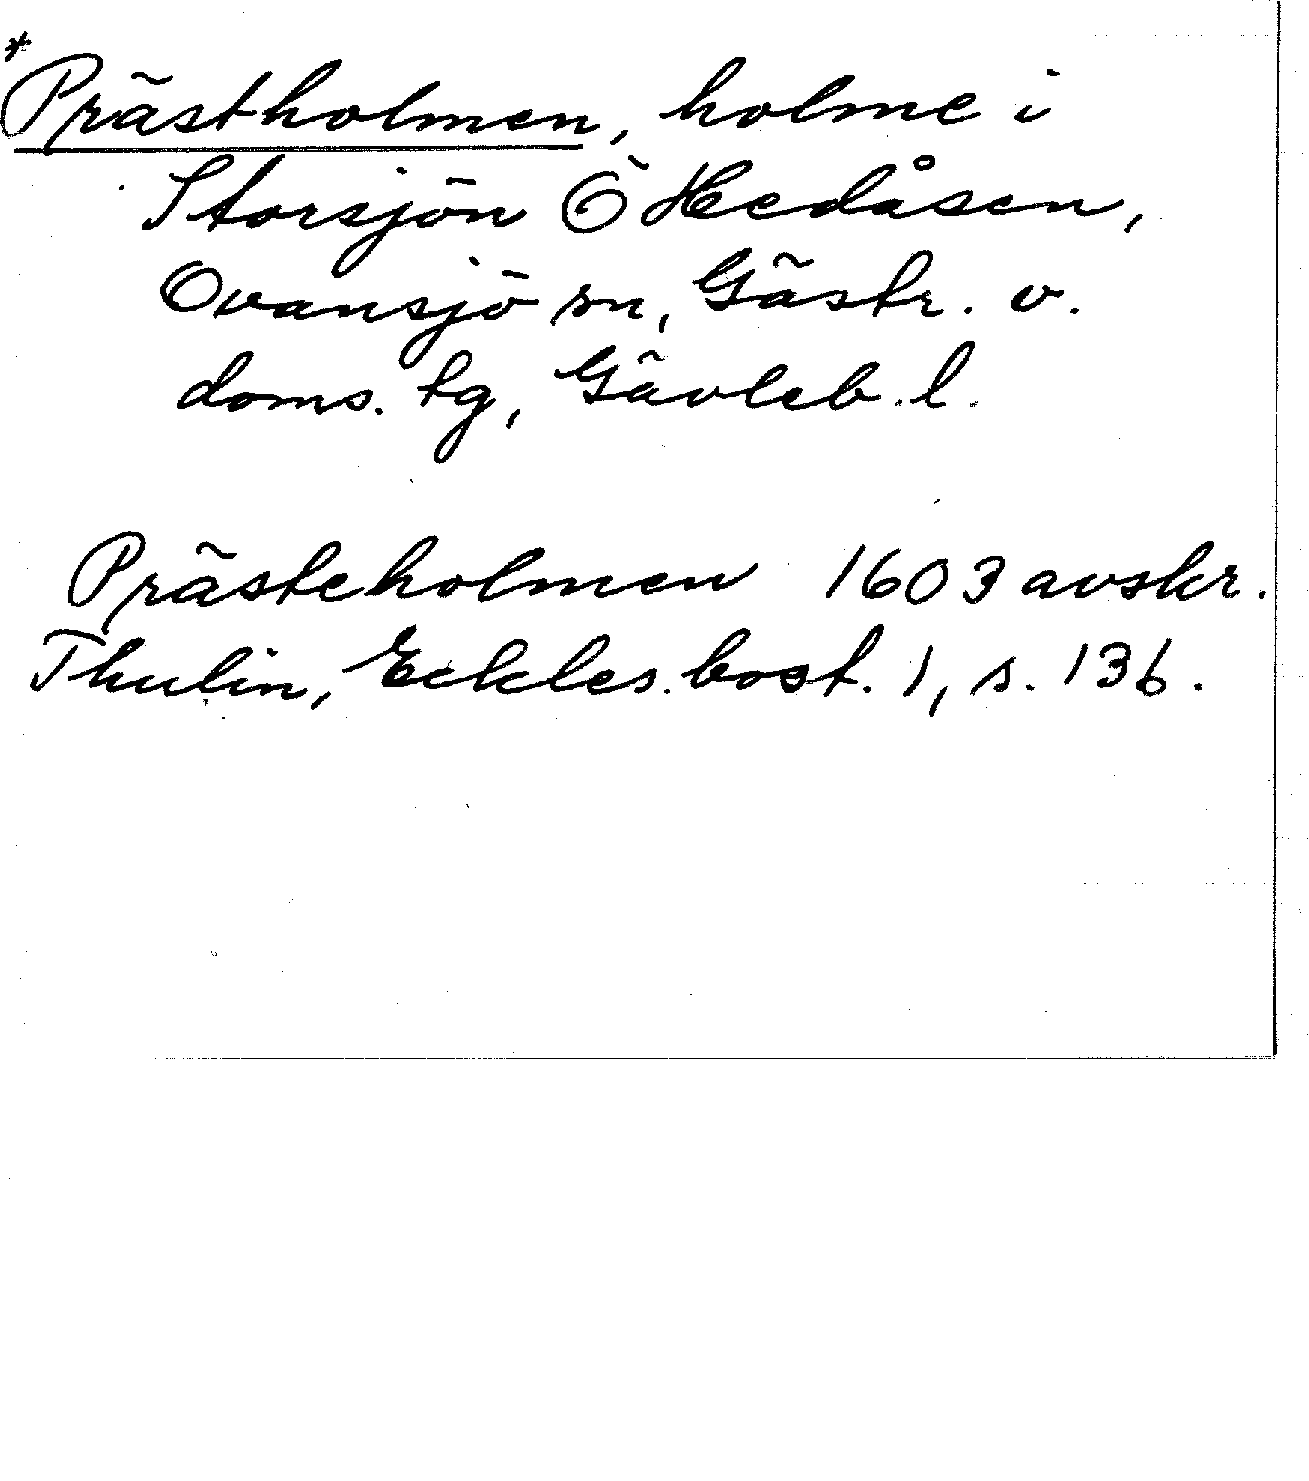 *
Prästholmen, holme i
Storsjön Ö Hedåsen,
Ovansjö sn, Gästr. v.
doms. tg, Gävleb. l.
Prästeholmen 1603 avskr.
Thulin, Eckles. bost. 1, s. 136.